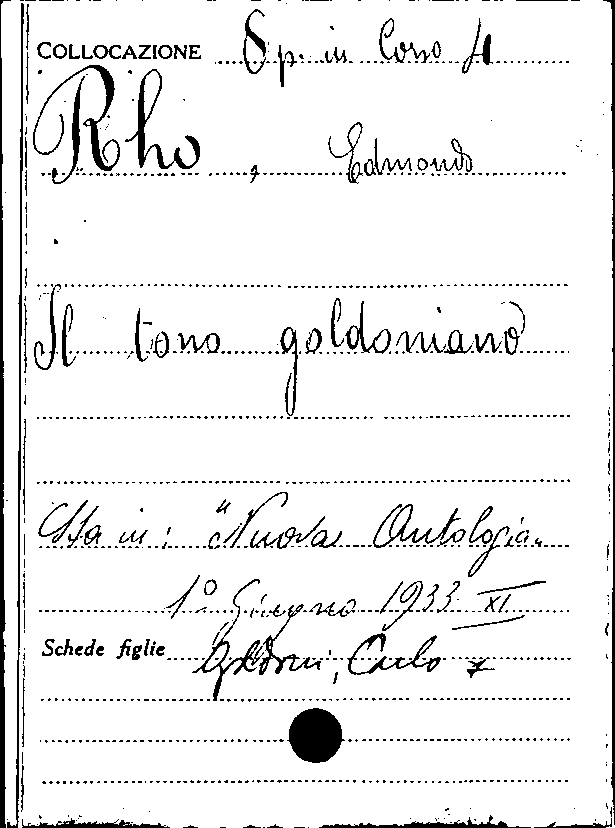 COLLOCAZIONE Op. in Corso 4
Rho, Edmondo
Il tono goldoniano
Sta in: "Nuova Antologia„
1º Giugno 1933 XI
Schede figlie Goldoni, Carlo